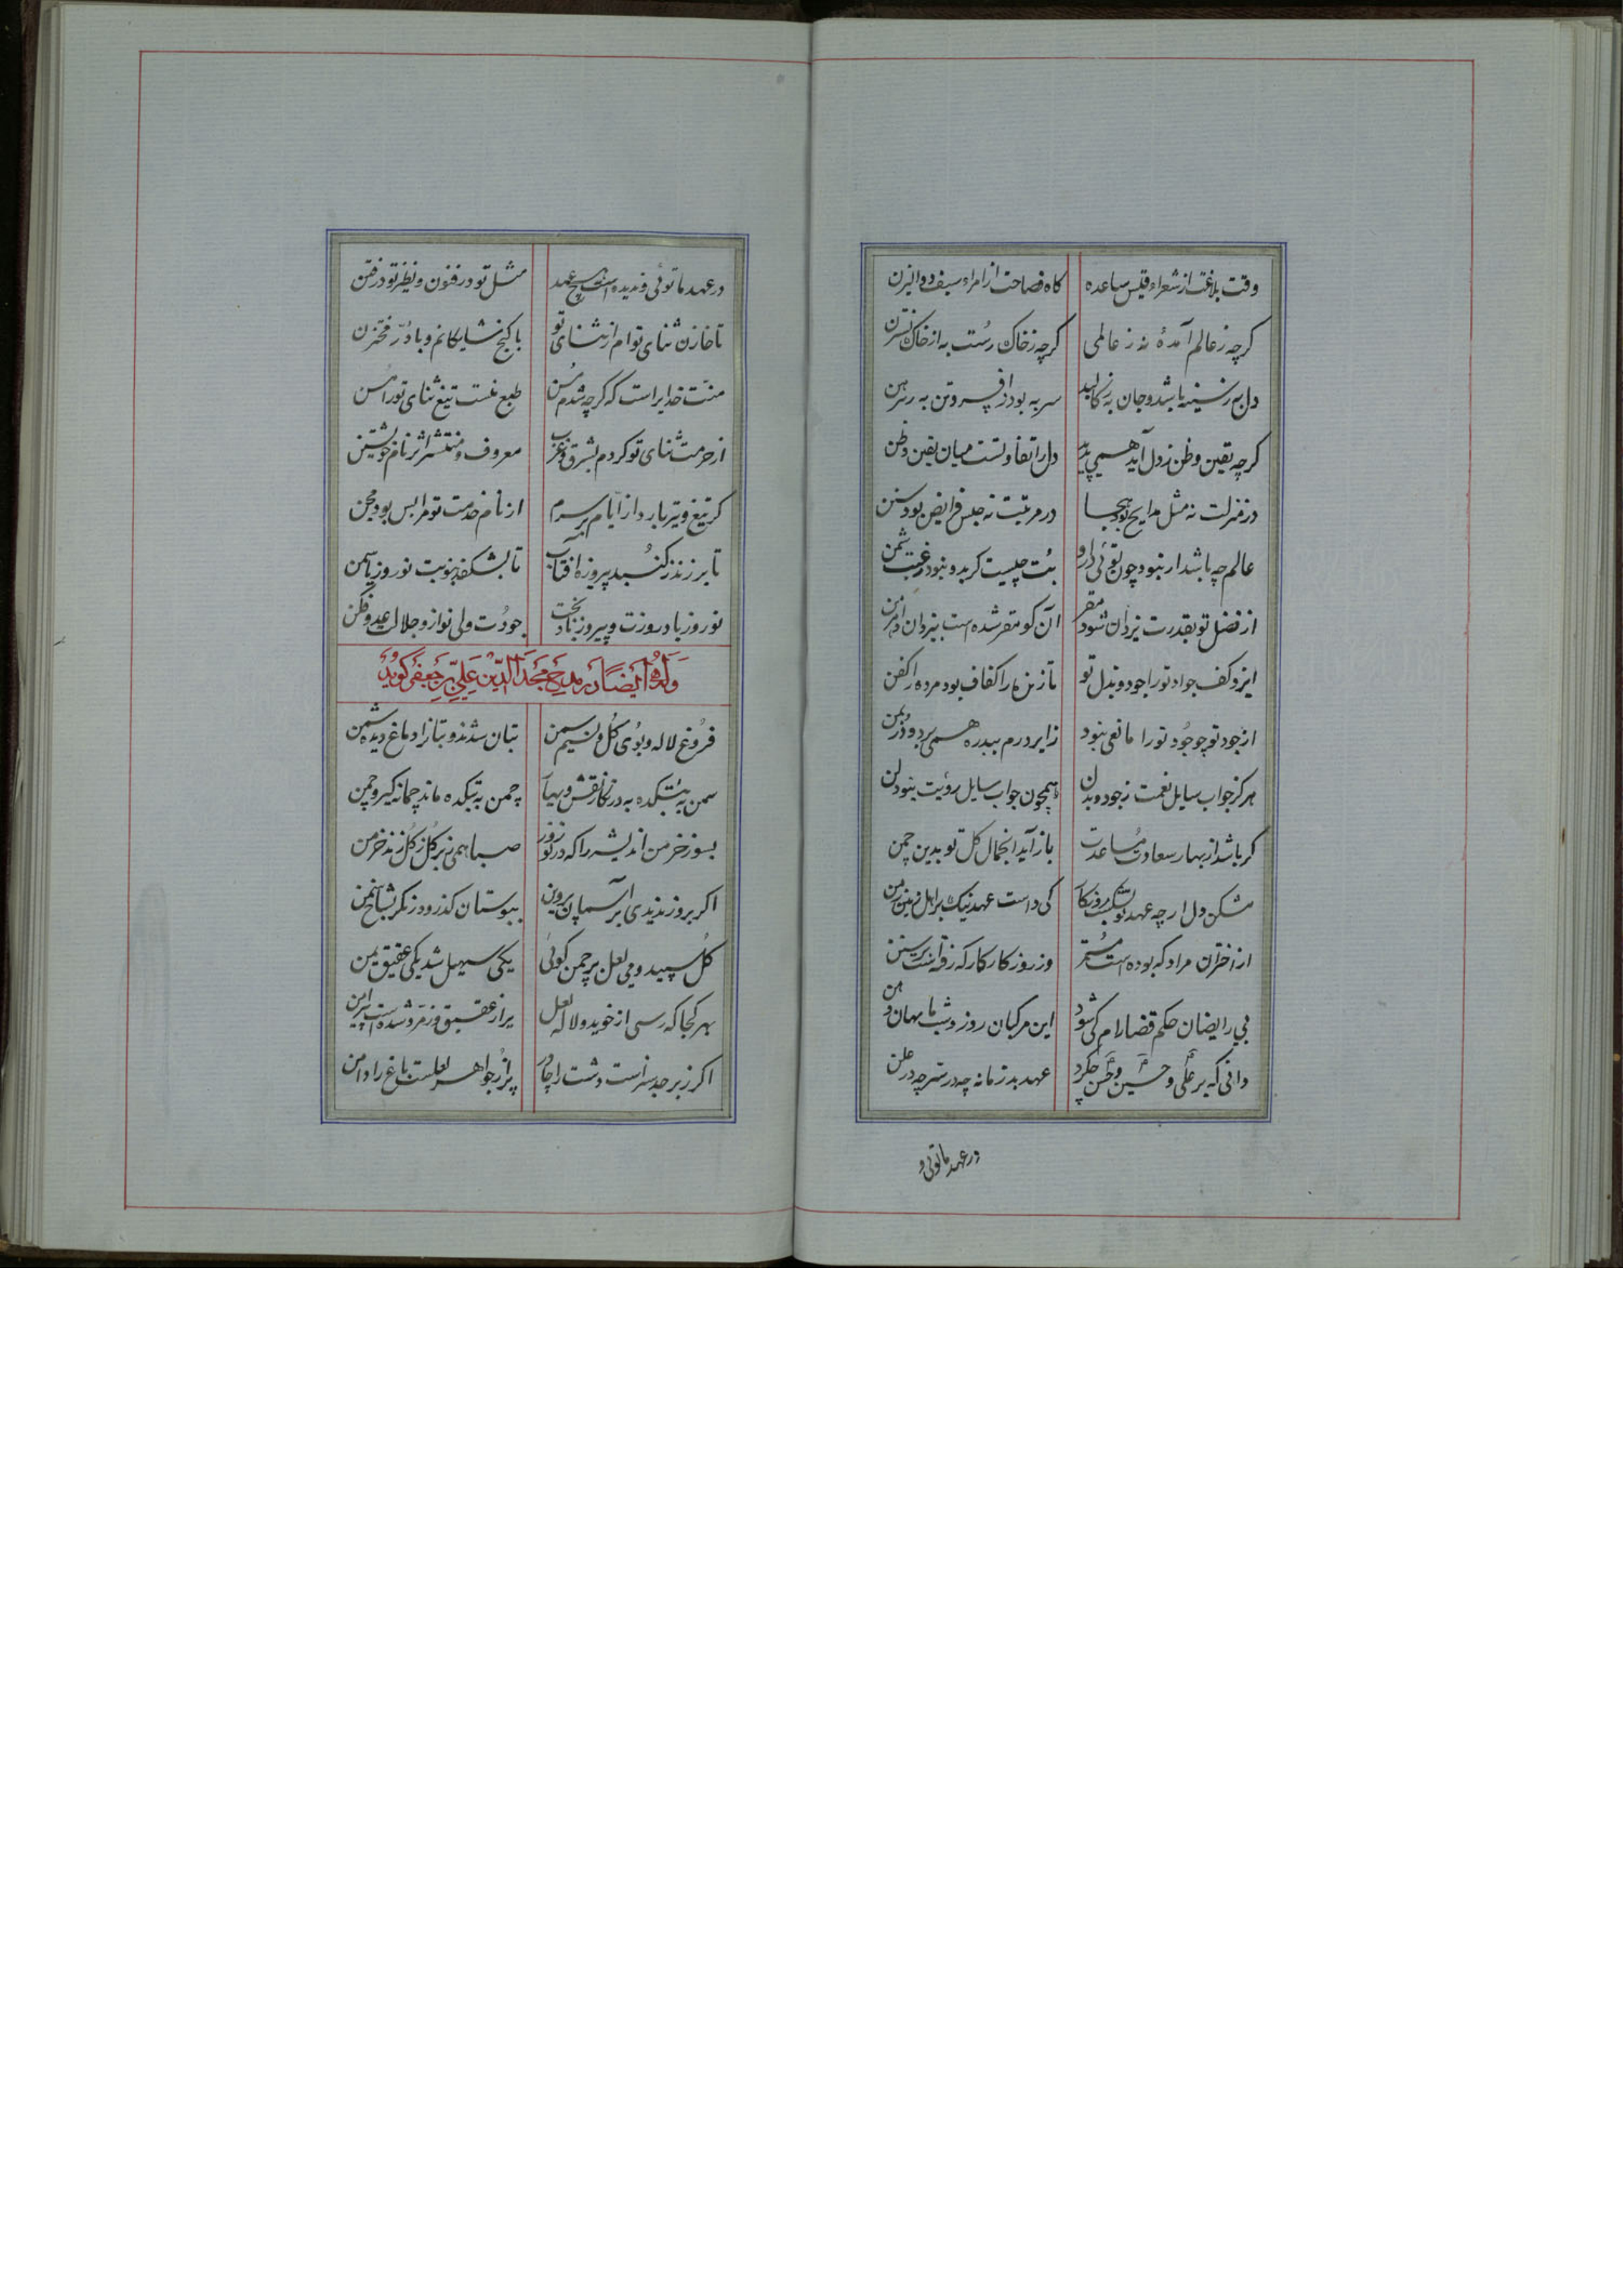 وقت بلاغت از شعراء قیس ساعده گاه فصاحت از امراء سیف ذو الیزن
گرچه ز عالم آمدهٔ نه ز عالمی گرچه ز خاک رست به از خاک نسترن
دل به ز سینه باشد و جان به ز کالبد سر به بود ز افسر و تن به ز پیرهن
گرچه یقین و ظن ز دل آید همی پدید دل را تفاوتست میان یقین و ظن
در منزلت نه مثل مدایح بود هجا در مرتبت نه جنس فرایض بود سنن
عالم چه باشد ار نبود چون توئی درو بت چیست گر بدو نبود رغبت شمن
از فضل تو بقدرت یزدان شود مقر آن کو مقر شده است بیزدان و اهرمن
ایزد کف جواد تو را جود و بذل تو تا زنده را کفاف بود مرده را کفن
از جود تو چو جود تو را مانعی نبود زایر درم ببدره همی برد و در بمن
هرگز جواب سایل نعمت ز جود و بذل همچون جواب سایل رؤیت نبود لن
گر باشد از بهار سعادت مساعدت باز آید انجمال گل تو بدین چمن
مشکن دل ار چه عهد تو بشکست روزگار کی داست عهد نیک بر اهل زمین زمن
از اختران مراد که بوده است مستمر وز روزگار کار که رفته است بر سنن
بی رایضان حکم قضا رام کی شود این مرکبان روز و شب ما بهان و هن
دانی که بر علی و حسین و حسن چکرد عهد بد زمانه چه در سر چه در علن
در عهد ما توئی و
در عهد ما توئی و ندیده است هیچ عهد مثل تو در فنون و نظیر تو در فتن
تا خازن ثنای توام از ثنای تو با گنج شایگانم و با در مختزن
منت خدایراست که گرچه شدم مسن طبع منست تیغ ثنای تو را مسن
از حرمت ثنای تو کردم بشرق و غرب معروف و منتشر اثر نام خویشتن
گر تیغ و تیر بارد از ایام بر سرم از نام خدمت تو مرا بس بود مجن
تا بر زند ز گنبد پیروزه آفتاب تا بشکفد بنوبت نوروز یاسمن
نوروز باد روزت و پیروز باد بخت جودت ولی نواز و جلالت عدو فکن
وله ایضا در مدح مجد الدین علی بن جعفر گوید
فروغ لاله و بوی گل و نسیم سمن بتان شدند و بتانرا دماغ دیده شمن
سمن به بتکده به در نگار نقش و بیار چمن به بتکده ماند چمانه گیر و چمن
بسوز خرمن اندیشه را که در نوروز صبا همی ز بر گل ز گل زند خرمن
اگر بروز ندیدی بر آسمان پروین ببوستان گذر و در نگر بشاخ سمن
گل سپید و می لعل بر چمن گوئی یکی سهیل شد یکی عقیق یمن
بهر کجا که رسی از خوید و لاله لعل پر از عقیق و زمرد شده است پیرامن
اگر ز برجد سبز است دشت را چادر پر از جواهر لعلست باغ را دامن